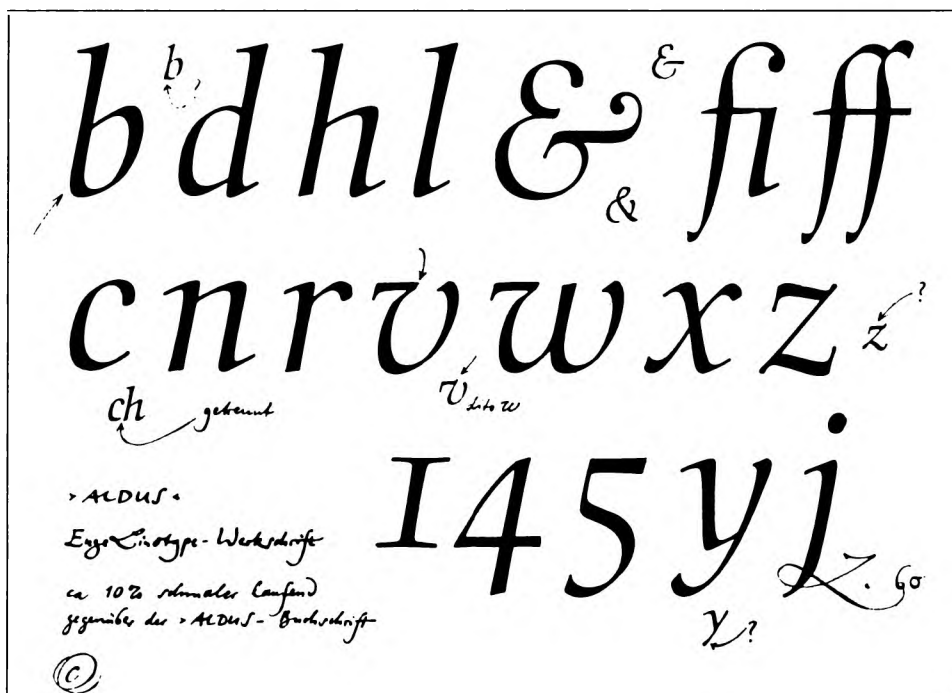 b
b d h l & fi ff
&
&
c n r v w x z
?
z
ch getrennt
v dito w
1 4 5 y j
›ALDUS‹
Enge Linotype-Werkschrift
ca 10% schmaler laufend
gegenüber der ›ALDUS-Buchschrift
Z. 60
y ?
©